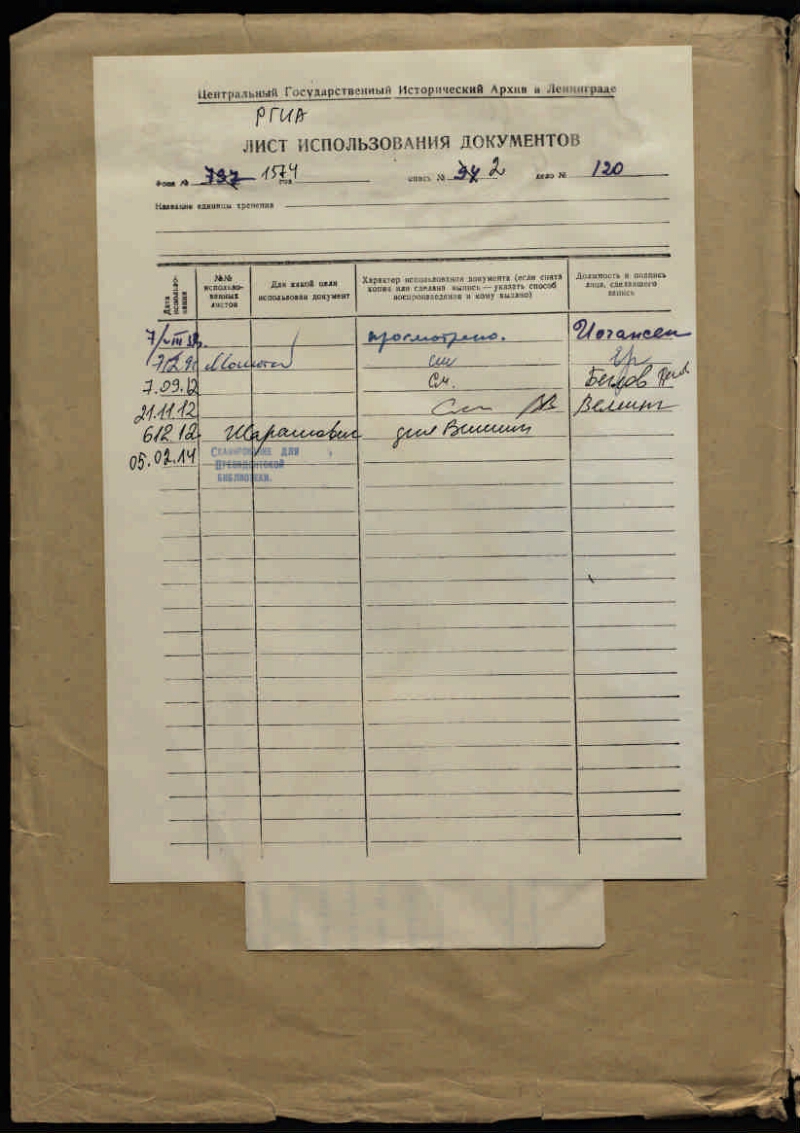 Центральный Государственный Исторический Архив в Ленинграде
РГИА
ЛИСТ ИСПОЛЬЗОВАНИЯ ДОКУМЕНТОВ
Фонд № 797 1574 год опись № 2 дело № 120
Название единицы хранения
Дата использования
№№ использо-
ванных
листов
Для какой цели
использован документ
Характер использования документа (если снята
копия или сделана выпись — указать способ
воспроизведения и кому выдано)
Должность и подпись
лица, сделавшего
запись
просмотрено. Иогансен
7.09.12 См. Беглов
21.11.12
6 12 12
05.02.14 Сканирование для
Президентской
библиотеки.